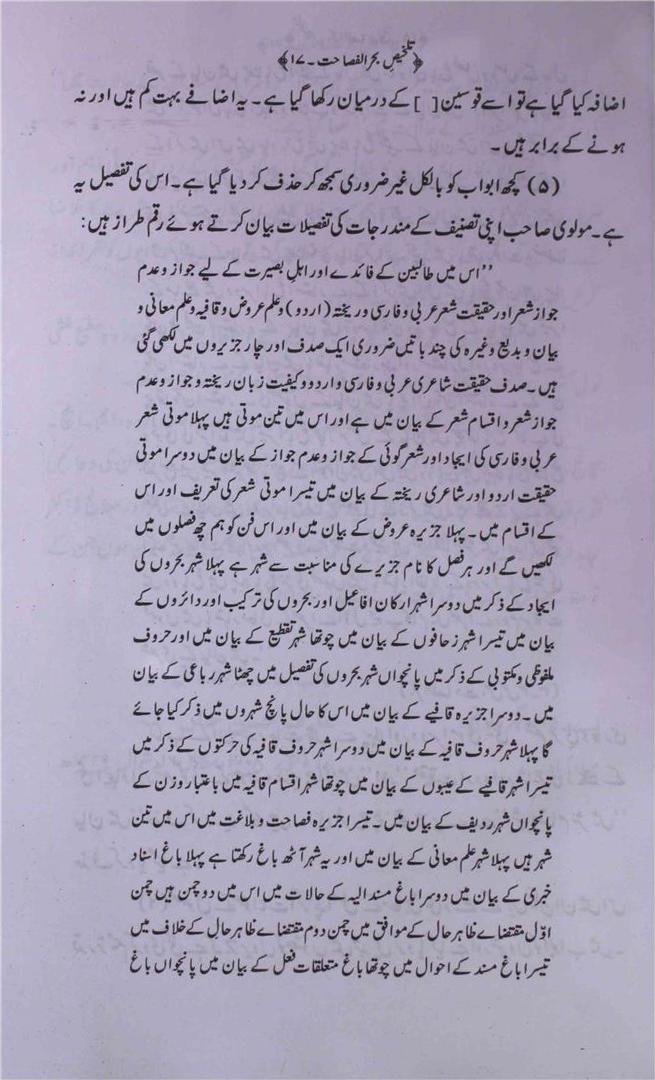 ﴿تلخیص بحر الفصاحت۔۱۷﴾
اضافہ کیا گیا ہے تو اسے قوسین [ ] کے درمیان رکھا گیا ہے۔ یہ اضافے بہت کم ہیں اور نہ
ہونے کے برابر ہیں۔
(۵) کچھ ابواب کو بالکل غیر ضروری سمجھ کر حذف کر دیا گیا ہے۔ اس کی تفصیل یہ
ہے۔ مولوی صاحب اپنی تصنیف کے مندرجات کی تفصیلات بیان کرتے ہوئے رقم طراز ہیں:
”اس میں طالبین کے فائدے اور اہلِ بصیرت کے لیے جواز و عدم
جواز شعر اور حقیقت شعر عربی و فارسی و ریختہ (اردو) و علم عروض و قافیہ و علم معانی و
بیان و بدیع وغیرہ کی چند باتیں ضروری ایک صدف اور چار جزیروں میں لکھی گئی
ہیں۔ صدف حقیقت شاعری عربی و فارسی و اردو و کیفیت زبان ریختہ و جواز و عدم
جواز شعر و اقسام شعر کے بیان میں ہے اور اس میں تین موتی ہیں پہلا موتی شعر
عربی و فارسی کی ایجاد اور شعر گوئی کے جواز و عدم جواز کے بیان میں دوسرا موتی
حقیقت اردو اور شاعری ریختہ کے بیان میں تیسرا موتی شعر کی تعریف اور اس
کے اقسام میں۔ پہلا جزیرہ عروض کے بیان میں اور اس فن کو ہم چھ فصلوں میں
لکھیں گے اور ہر فصل کا نام جزیرے کی مناسبت سے شہر ہے پہلا شہر بحروں کی
ایجاد کے ذکر میں دوسرا شہر ارکان افاعیل اور بحروں کی ترکیب اور دائروں کے
بیان میں تیسرا شہر زحافوں کے بیان میں چوتھا شہر تقطیع کے بیان میں اور حروف
ملفوظی و مکتوبی کے ذکر میں پانچواں شہر بحروں کی تفصیل میں چھٹا شہر رباعی کے بیان
میں۔ دوسرا جزیرہ قافیے کے بیان میں اس کا حال پانچ شہروں میں ذکر کیا جائے
گا پہلا شہر حروف قافیہ کے بیان میں دوسرا شہر حروف قافیہ کی حرکتوں کے ذکر میں
تیسرا شہر قافیے کے عیبوں کے بیان میں چوتھا شہر اقسام قافیہ میں باعتبار وزن کے
پانچواں شہر ردیف کے بیان میں۔ تیسرا جزیرہ فصاحت و بلاغت میں اس میں تین
شہر ہیں پہلا شہر علم معانی کے بیان میں اور یہ شہر آٹھ باغ رکھتا ہے پہلا باغ اسناد
خبری کے بیان میں دوسرا باغ مسند الیہ کے حالات میں اس میں دو چمن ہیں چمن
اوّل مقتضاے ظاہر حال کے موافق میں چمن دوم مقتضاے ظاہر حال کے خلاف میں
تیسرا باغ مسند کے احوال میں چوتھا باغ متعلقات فعل کے بیان میں پانچواں باغ